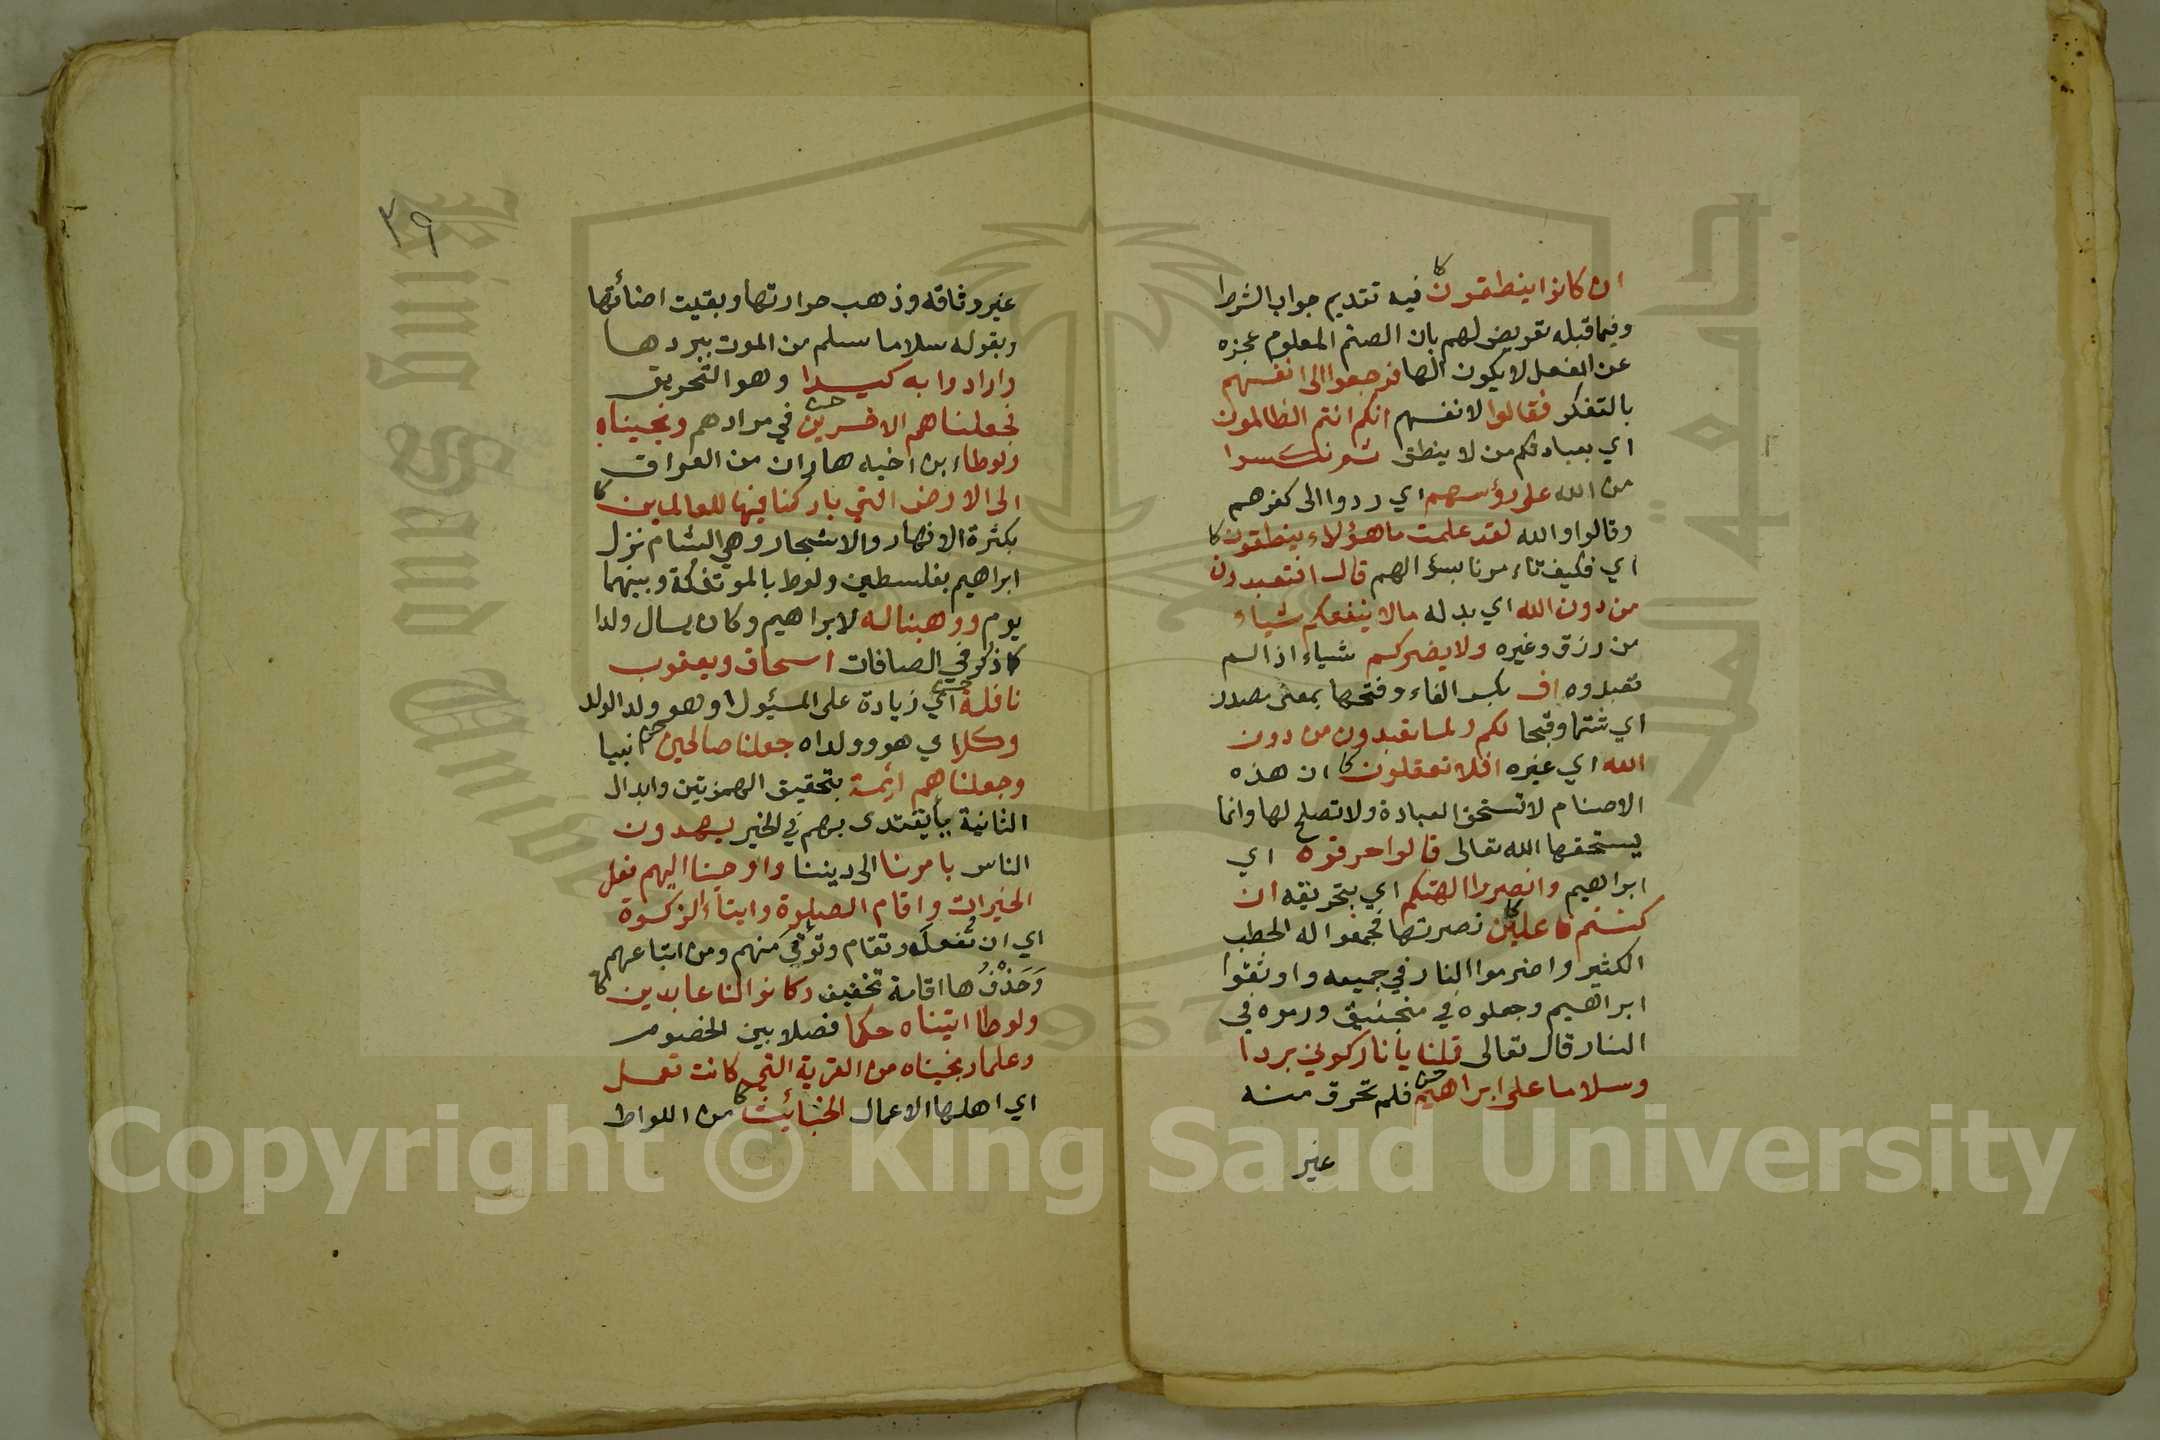 ان كانوا ينطقون كا فيه تقديم جواب الشرط
وفيما قبله تعريض لهم بان الصنم المعلوم عجزه
عن الفعل لا يكون الها فرجعوا الى انفسهم
بالتفكر فقالوا لانفسهم انكم انتم الظالمون
اي بعبادتكم من لا ينطق ثم نكسوا
من الله على رؤسهم اي ردوا الى كفرهم
وقالوا والله لقد علمت ما هؤلاء ينطقون كا
اي فكيف تاءمرنا بسؤالهم قال افتعبدون
من دون الله اي بدله مالا ينفعكم شياء
من رزق وغيره ولا يضركم شياء اذا لم
تعبدوه اف بكسر الفاء وفتحها بمعنى مصدر
اي شتما وقبحا لكم ولما تعبدون من دون
الله اي غيره افلا تعقلون كا ان هذه
الاصنام لا تستحق العبادة ولا تصلح لها وانما
يستحقها الله تعالى قالوا حرقوه اي
ابراهيم وانصروا الهتكم اي بتحريقه ان
كنتم فاعلين كا نصرتها فجمعوا له الحطب
الكثير واضرموا النار في جميعه واوثقوا
ابراهيم وجعلوه في منجنيق ورموه في
النار قال تعالى قلنا يا نار كوني بردا
وسلاما على ابراهيم فلم تحرق منه
غير
٣٩
غير وثاقه وذهب حرارتها وبقيت اضائتها
وبقوله سلاما سلم من الموت ببردها
وارادوا به كيدا وهو التحريق
فجعلناهم الاخسرين في مرادهم ونجيناه
ولوطا ابن اخيه هاران من العراق
الى الارض التي باركنا فيها للعالمين كا
بكثرة الانهار والاشجار وهي الشام نزل
ابراهيم بفلسطين ولوط بالموتفكة وبينهما
يوم ووهبنا له لابراهيم وكان يسال ولدا
كما ذكر في الصافات اسحاق ويعقوب
نافلة اي زيادة على المسئول او هو ولد الولد
وكلا اي هو وولداه جعلنا صالحين انبيا
وجعلناهم ائمة بتحقيق الهمزتين وابدال
الثانية ياء يقتدى بهم في الخير يهدون
الناس بامرنا الى ديننا واوحينا اليهم فعل
الخيرات واقام الصلوة وايتاء الزكوة
اي ان تُفعل وتقام وتؤتى منهم ومن اتباعهم
وَحَذْفُ ها اقامة تخفيف وكانوا لنا عابدين كا
ولوطا اتيناه حكما فصلا بين الخصوم
وعلما ونجيناه من القرية التي كانت تعمل
اي اهلها الاعمال الخبائث كا من اللواط
جامعة الملك
King Saud University
1957
Copyright © King Saud University